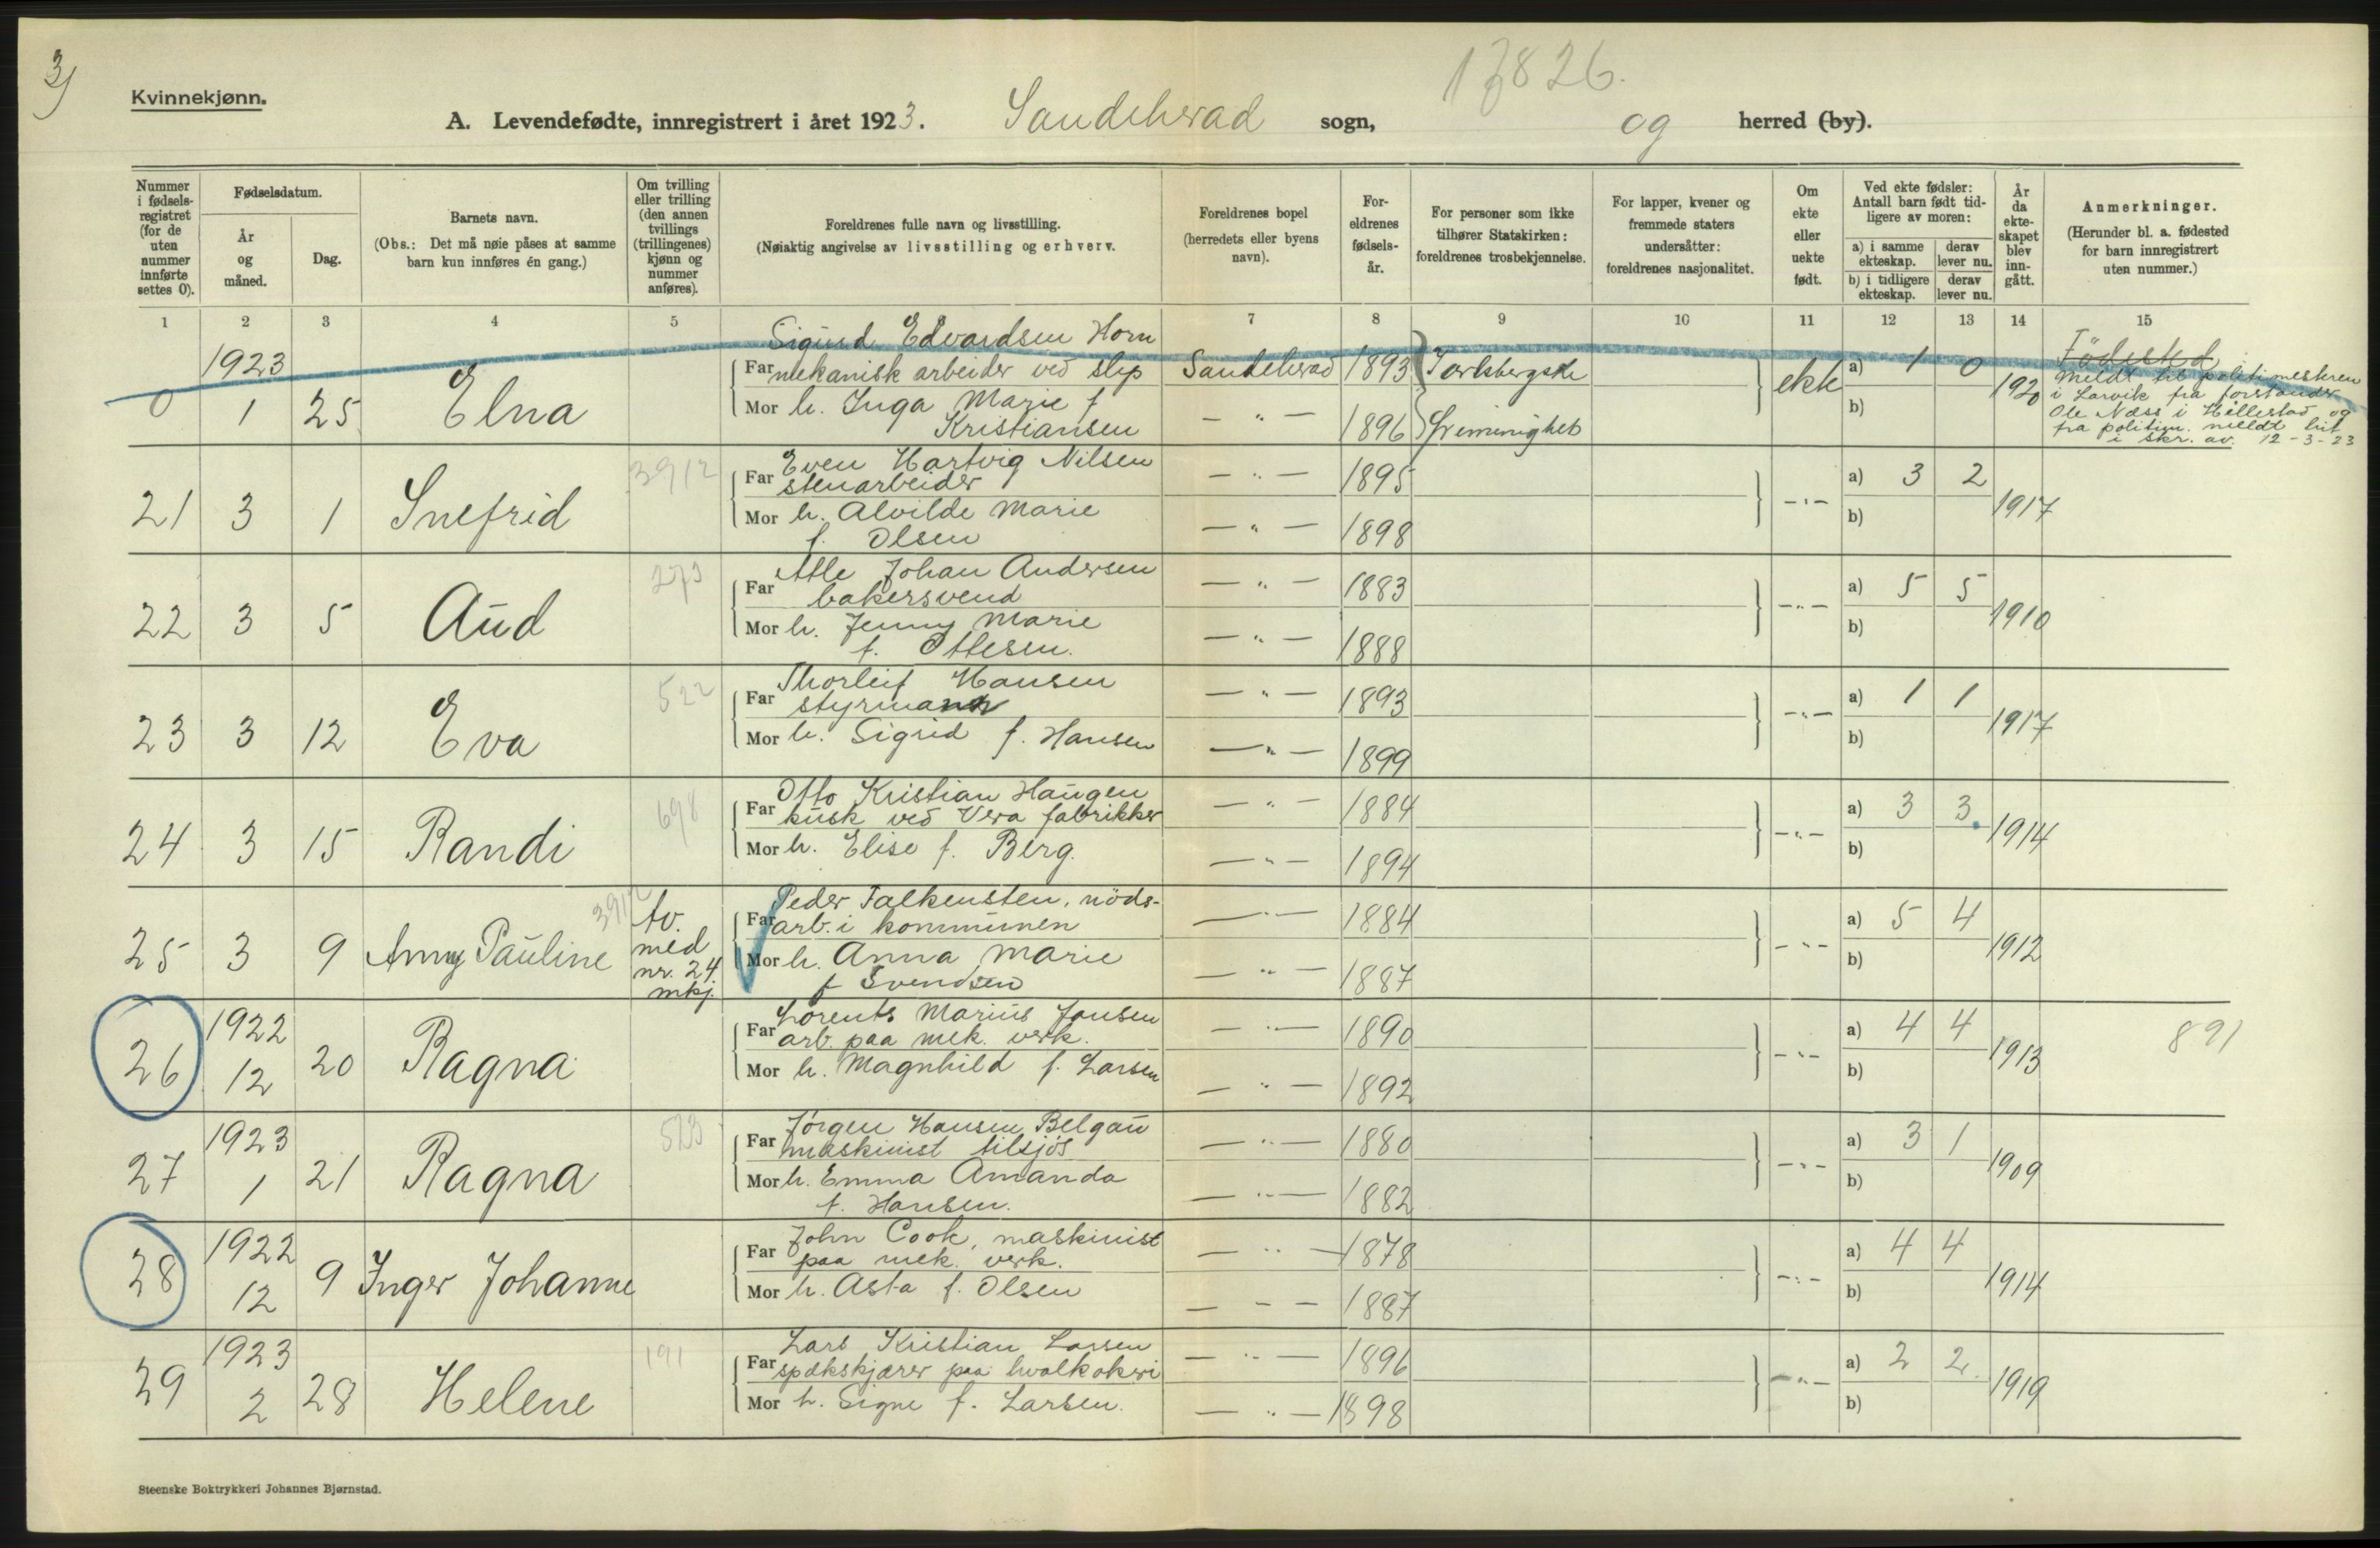 3)
Kvinnekjønn.
13826.
A. Levendefødte, innregistrert i året 1923. Sandeherad sogn, og herred (by).
Nummer i fødsels-registret (for de uten nummer innførte settes 0).
Fødselsdatum.
År og måned.
Dag.
Barnets navn.
(Obs.: Det må nøie påses at samme barn kun innføres én gang.)
Om tvilling eller trilling (den annen tvillings (trillingenes) kjønn og nummer anføres).
Foreldrenes fulle navn og livsstilling.
(Nøiaktig angivelse av livsstilling og erhverv.
Foreldrenes bopel (herredets eller byens navn).
For-eldrenes fødsels-år.
For personer som ikke tilhører Statskirken: foreldrenes trosbekjennelse.
For lapper, kvener og fremmede staters undersåtter: foreldrenes nasjonalitet.
Om ekte eller uekte født.
Ved ekte fødsler: Antall barn født tid-ligere av moren:
a) i samme ekteskap.
derav lever nu.
b) i tidligere ekteskap.
derav lever nu.
År da ekte-skapet blev inn-gått.
Anmerkninger.
(Herunder bl. a. fødested for barn innregistrert uten nummer.)
1 2 3 4 5 7 8 9 10 11 12 13 14 15
1923
0 1 25 Elna
Sigurd Edvardsen Horn
Far mekanisk arbeider ved slip Sandeherad 1893 Jarlsbergske
Mor h. Inga Marie f. Kristiansen — " — 1896 frimenighet
ekte a) 1 0 b) 1920
Fødested
meldt til politimesteren
i Larvik fra forstander
Ole Næss i Hillestad og
fra politim. meldt hit
i skr. av 12-3-23
21 3 1 Snefrid 3912
Far Even Hartvig Nilsen stenarbeider — " — 1895
Mor h. Alvilde Marie f. Olsen — " — 1898
— " — a) 3 2 b) 1917
22 3 5 Aud 273
Far Atle Johan Andersen bakersvend — " — 1883
Mor h. Jenny Marie f. Ottesen. — " — 1888
— " — a) 5 5 b) 1910
23 3 12 Eva 522
Far Thorleif Hansen styrmann — " — 1893
Mor h. Sigrid f. Hansen — " — 1899
— " — a) 1 1 b) 1917
24 3 15 Randi 698
Far Otto Kristian Haugen kusk ved Vera fabrikker — " — 1884
Mor h. Elise f. Berg. — " — 1894
— " — a) 3 3 b) 1914
25 3 9 Anny Pauline 3912 tv. med nr. 24 mkj.
Far Peder Falkensten, nöds-arb. i kommunen — " — 1884
Mor h. Anna Marie f Svendsen — " — 1887
— " — a) 5 4 b) 1912
1922
26 12 20 Ragna
Far Lorents Marius Jansen arb. paa mek. verk. — " — 1890
Mor h. Magnhild f. Larsen — " — 1892
— " — a) 4 4 b) 1913 891
1923
27 1 21 Ragna
Far Jörgen Hansen Belgau maskinist tilsjös — " — 1880
Mor h. Emma Amanda f. Hansen. — " — 1882
— " — a) 3 1 b) 1909
1922
28 12 9 Inger Johanne
Far John Cook, maskinist paa mek. verk. — " — 1878
Mor h. Asta f. Olsen — " — 1887
— " — a) 4 4 b) 1914
1923
29 2 28 Helene 191
Far Lars Kristian Larsen spækskjærer paa hvalkokeri — " — 1896
Mor h. Signe f. Larsen. — " — 1898
— " — a) 2 2 b) 1919
Steenske Boktrykkeri Johannes Bjørnstad.